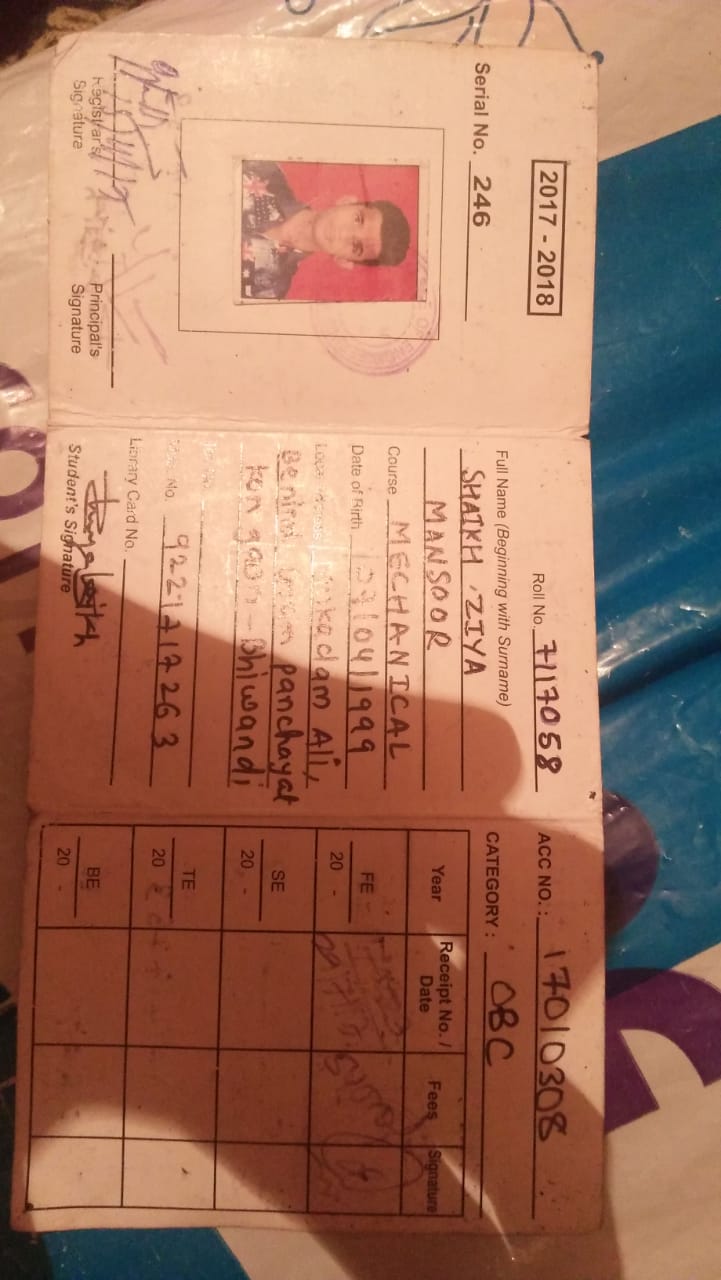 2017 - 2018
Serial No. 246
Registrar's Signature
Principal's Signature
Roll No. 7117058
Full Name (Beginning with Surname)
SHAIKH ZIYA
MANSOOR
Course MECHANICAL
Date of Birth /04/1999
Ali,
Behind panchayat
kongaon - Bhiwandi
No. 9221717263
Library Card No.
Student's Signature
ACC NO. : 17010308
CATEGORY : OBC
Year Receipt No. / Date Fees Signature
FE
20 -
SE
20 -
TE
20
BE
20 -